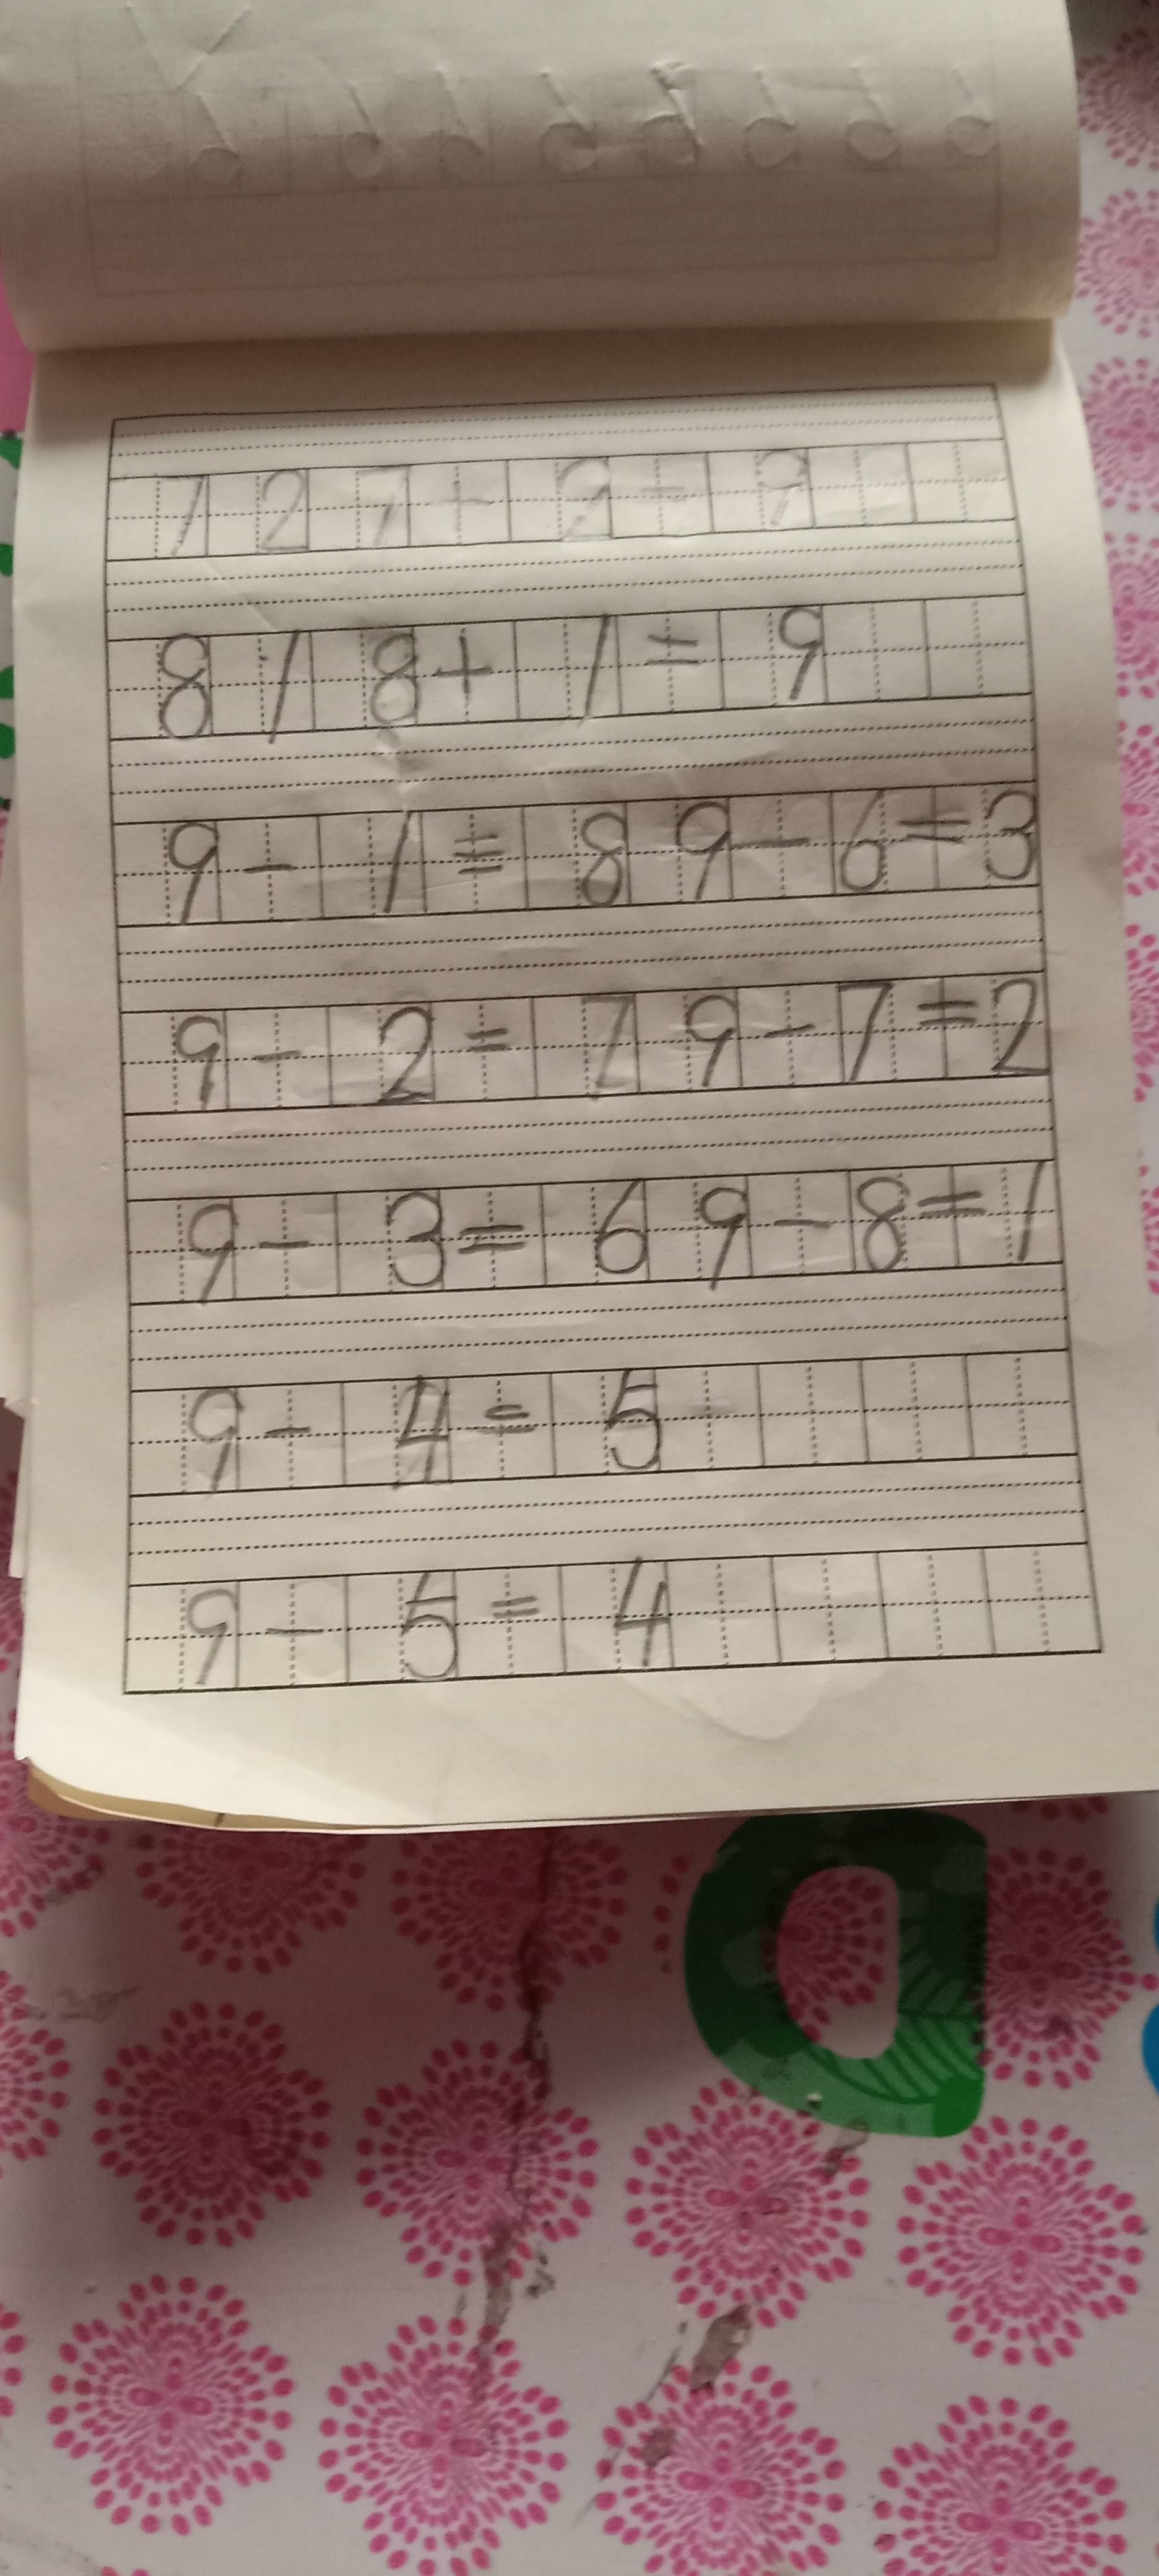 7 2 7 + 2 = 9
8 1 8 + 1 = 9
9 - 1 = 8 9 - 6 = 3
9 - 2 = 7 9 - 7 = 2
9 - 3 = 6 9 - 8 = 1
9 - 4 = 5
9 - 5 = 4